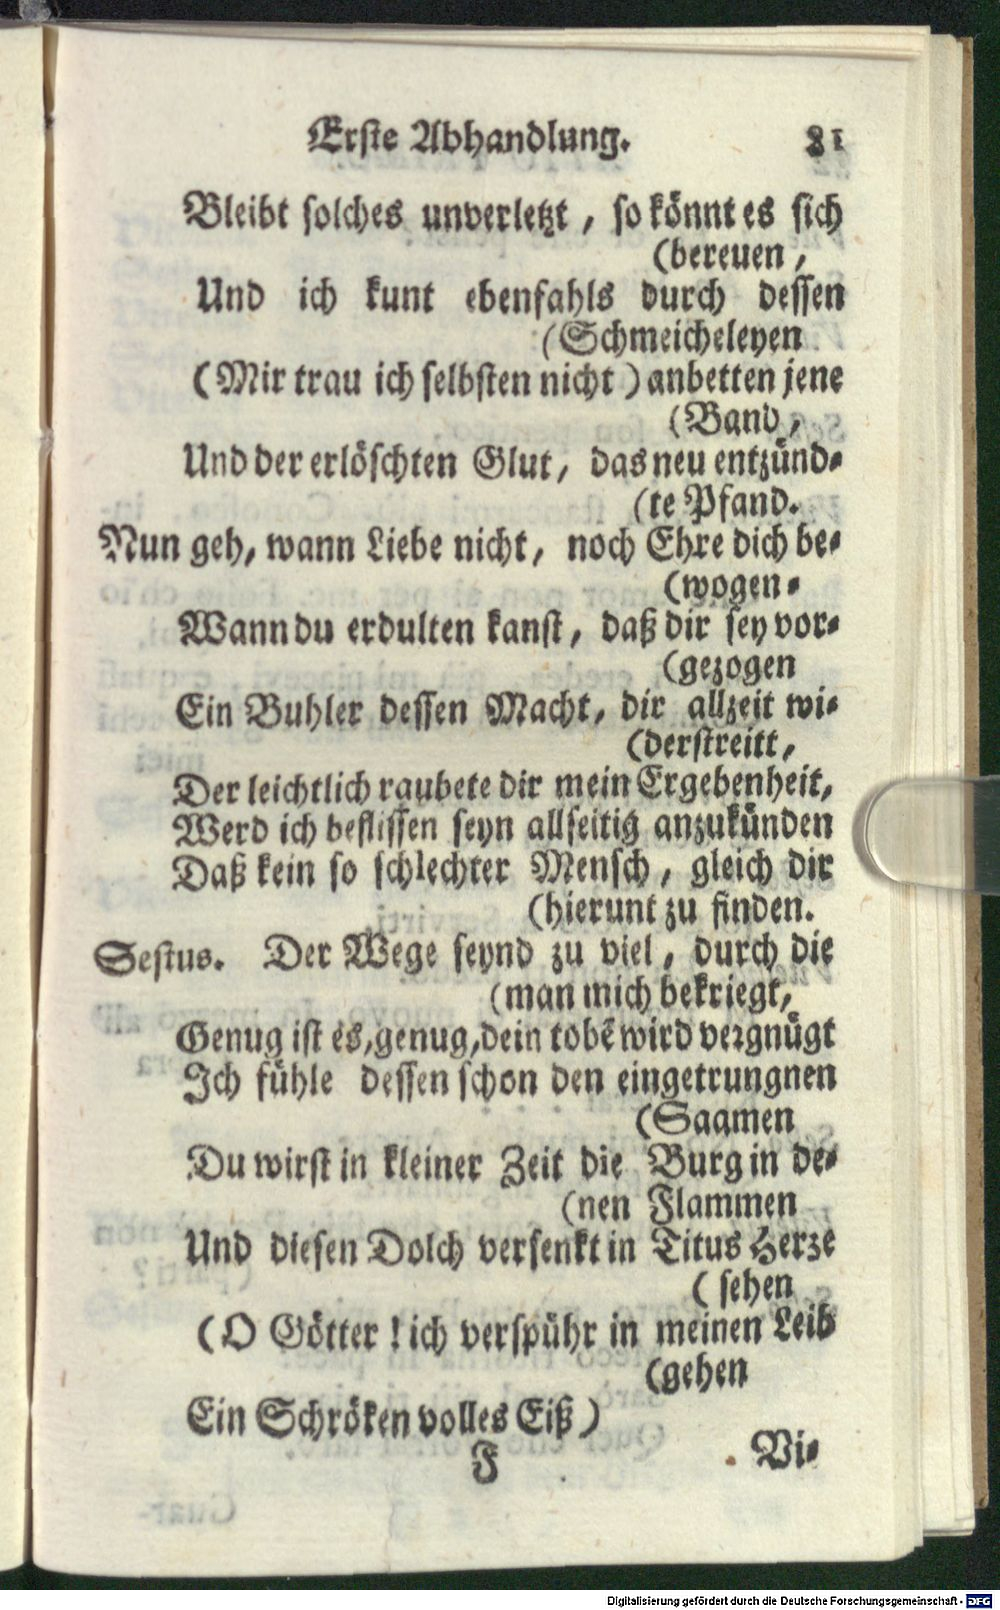 Erste Abhandlung. 81
Bleibt solches unverletzt, so könnt es sich
(bereuen,
Und ich kunt ebenfahls durch dessen
(Schmeicheleyen
(Mir trau ich selbsten nicht) anbetten jene
(Band,
Und der erlöschten Glut, das neu entzünd-
(te Pfand.
Nun geh, wann Liebe nicht, noch Ehre dich be-
(wogen-
Wann du erdulten kanst, daß dir sey vor-
(gezogen
Ein Buhler dessen Macht, dir allzeit wi-
(derstreitt,
Der leichtlich raubete dir mein Ergebenheit,
Werd ich beflissen seyn allseitig anzukünden
Daß kein so schlechter Mensch, gleich dir
(hierunt zu finden.
Sestus. Der Wege seynd zu viel, durch die
(man mich bekriegt,
Genug ist es, genug, dein tobē wird vergnügt
Ich fühle dessen schon den eingetrungnen
(Saamen
Du wirst in kleiner Zeit die Burg in de-
(nen Flammen
Und diesen Dolch versenkt in Titus Herze
(sehen
(O Götter! ich verspühr in meinen Leib
(gehen
Ein Schröken volles Eiß)
F Vi-
Digitalisierung gefördert durch die Deutsche Forschungsgemeinschaft - DFG